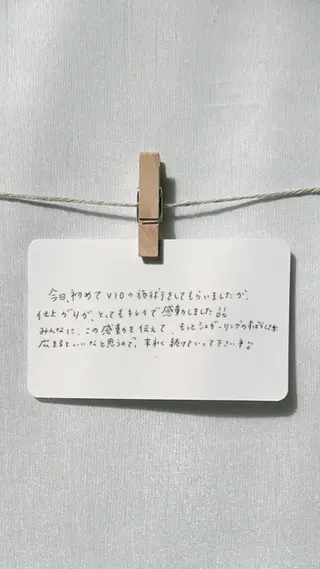 今日、初めてVIOの施術をしてもらいましたが、
仕上がりが、とってもキレイで感動しました!!
みんなに、この感動を伝えて、もっとシュガーリングの素晴らしさが
広まるといいなと思うので、末永く続けていって下さいネ!!